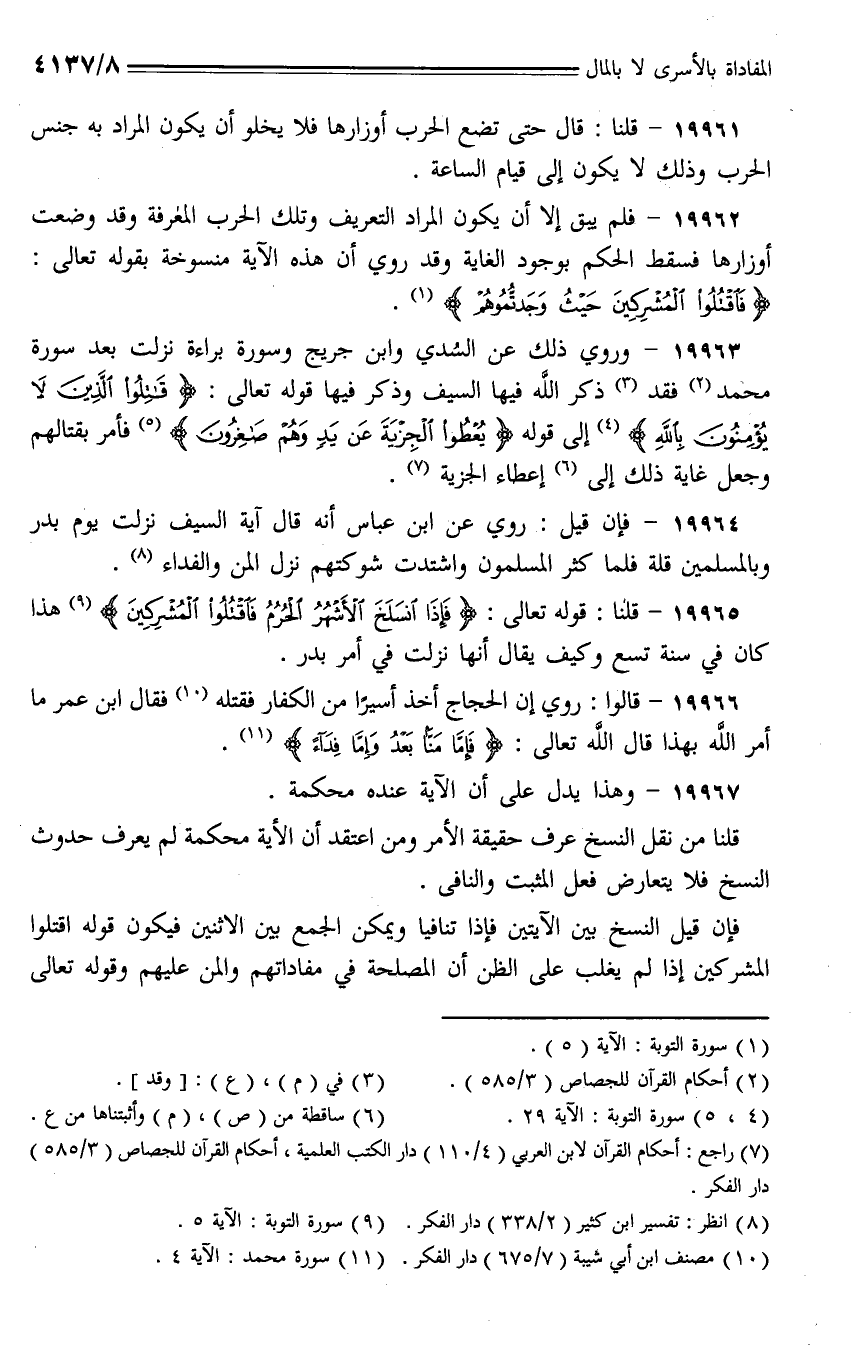 المفاداة بالأسرى لا بالمال ٤١٣٧/٨
١٩٩٦١ - قلنا : قال حتى تضع الحرب أوزارها فلا يخلو أن يكون المراد به جنس
الحرب وذلك لا يكون إلى قيام الساعة .
١٩٩٦٢ - فلم يبق إلا أن يكون المراد التعريف وتلك الحرب المعُرفة وقد وضعت
أوزارها فسقط الحكم بوجود الغاية وقد روي أن هذه الآية منسوخة بقوله تعالى :
﴿ فَٱقْتُلُواْ ٱلْمُشْرِكِينَ حَيْثُ وَجَدتُّمُوهُمْ ﴾ (١) .
١٩٩٦٣ - وروي ذلك عن السُدي وابن جريج وسورة براءة نزلت بعد سورة
محمد (٢) فقد (٣) ذكر اللَّه فيها السيف وذكر فيها قوله تعالى : ﴿ قَـٰتِلُواْ ٱلَّذِينَ لَا
يُؤْمِنُونَ بِٱللَّهِ ﴾ (٤) إلى قوله ﴿ يُعْطُواْ ٱلْجِزْيَةَ عَن يَدٍ وَهُمْ صَـٰغِرُونَ ﴾ (٥) فأمر بقتالهم
وجعل غاية ذلك إلى (٦) إعطاء الجزية (٧) .
١٩٩٦٤ - فإن قيل : روي عن ابن عباس أنه قال آية السيف نزلت يوم بدر
وبالمسلمين قلة فلما كثر المسلمون واشتدت شوكتهم نزل المن والفداء (٨) .
١٩٩٦٥ - قلنا : قوله تعالى : ﴿ فَإِذَا ٱنسَلَخَ ٱلْأَشْهُرُ ٱلْحُرُمُ فَٱقْتُلُواْ ٱلْمُشْرِكِينَ ﴾ (٩) هذا
كان في سنة تسع وكيف يقال أنها نزلت في أمر بدر .
١٩٩٦٦ - قالوا : روي إن الحجاج أخذ أسيرًا من الكفار فقتله (١٠) فقال ابن عمر ما
أمر اللَّه بهذا قال اللَّه تعالى : ﴿ فَإِمَّا مَنًّا بَعْدُ وَإِمَّا فِدَآءً ﴾ (١١) .
١٩٩٦٧ - وهذا يدل على أن الآية عنده محكمة .
قلنا من نقل النسخ عرف حقيقة الأمر ومن اعتقد أن الأية محكمة لم يعرف حدوث
النسخ فلا يتعارض فعل المثبت والنافى .
فإن قيل النسخ بين الآيتين فإذا تنافيا ويمكن الجمع بين الاثنين فيكون قوله اقتلوا
المشركين إذا لم يغلب على الظن أن المصلحة في مفاداتهم والمن عليهم وقوله تعالى
(١) سورة التوبة : الآية ( ٥ ) .
(٢) أحكام القرآن للجصاص ( ٥٨٥/٣ ) . (٣) في ( م ) ، ( ع ) : [ وقد ] .
(٤ ، ٥) سورة التوبة : الآية ٢٩ . (٦) ساقطة من ( ص ) ، ( م ) وأثبتناها من ع .
(٧) راجع : أحكام القرآن لابن العربي ( ١١٠/٤ ) دار الكتب العلمية ، أحكام القرآن للجصاص ( ٥٨٥/٣ )
دار الفكر .
(٨) انظر : تفسير ابن كثير ( ٣٣٨/٢ ) دار الفكر . (٩) سورة التوبة : الآية ٥ .
(١٠) مصنف ابن أبي شيبة ( ٦٧٥/٧ ) دار الفكر . (١١) سورة محمد : الآية ٤ .